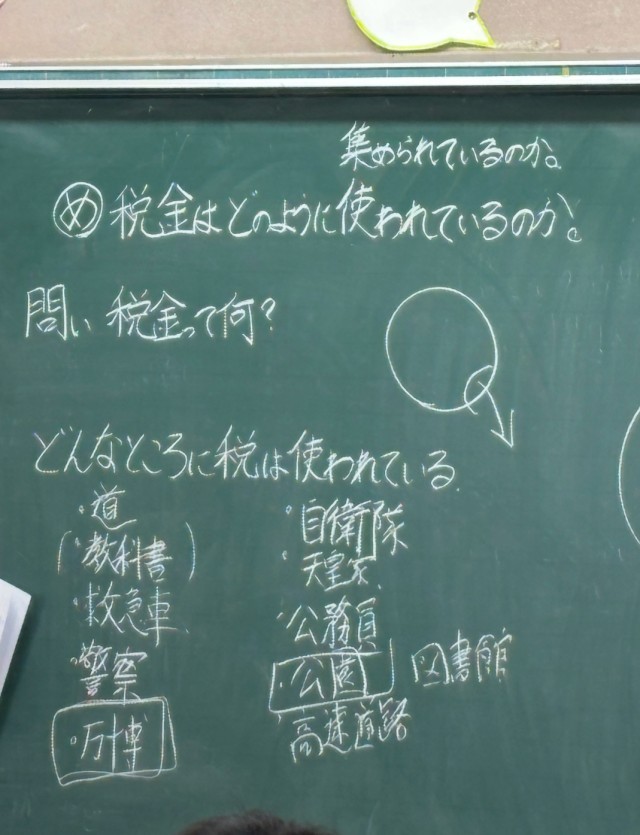 集められているのか。
め 税金はどのように使われているのか。
問い 税金って何?
どんなところに税は使われている
・道
(・教科書)
・救急車
・警察
・万博
・自衛隊
・天皇家
・公務員
・公園 図書館
高速道路